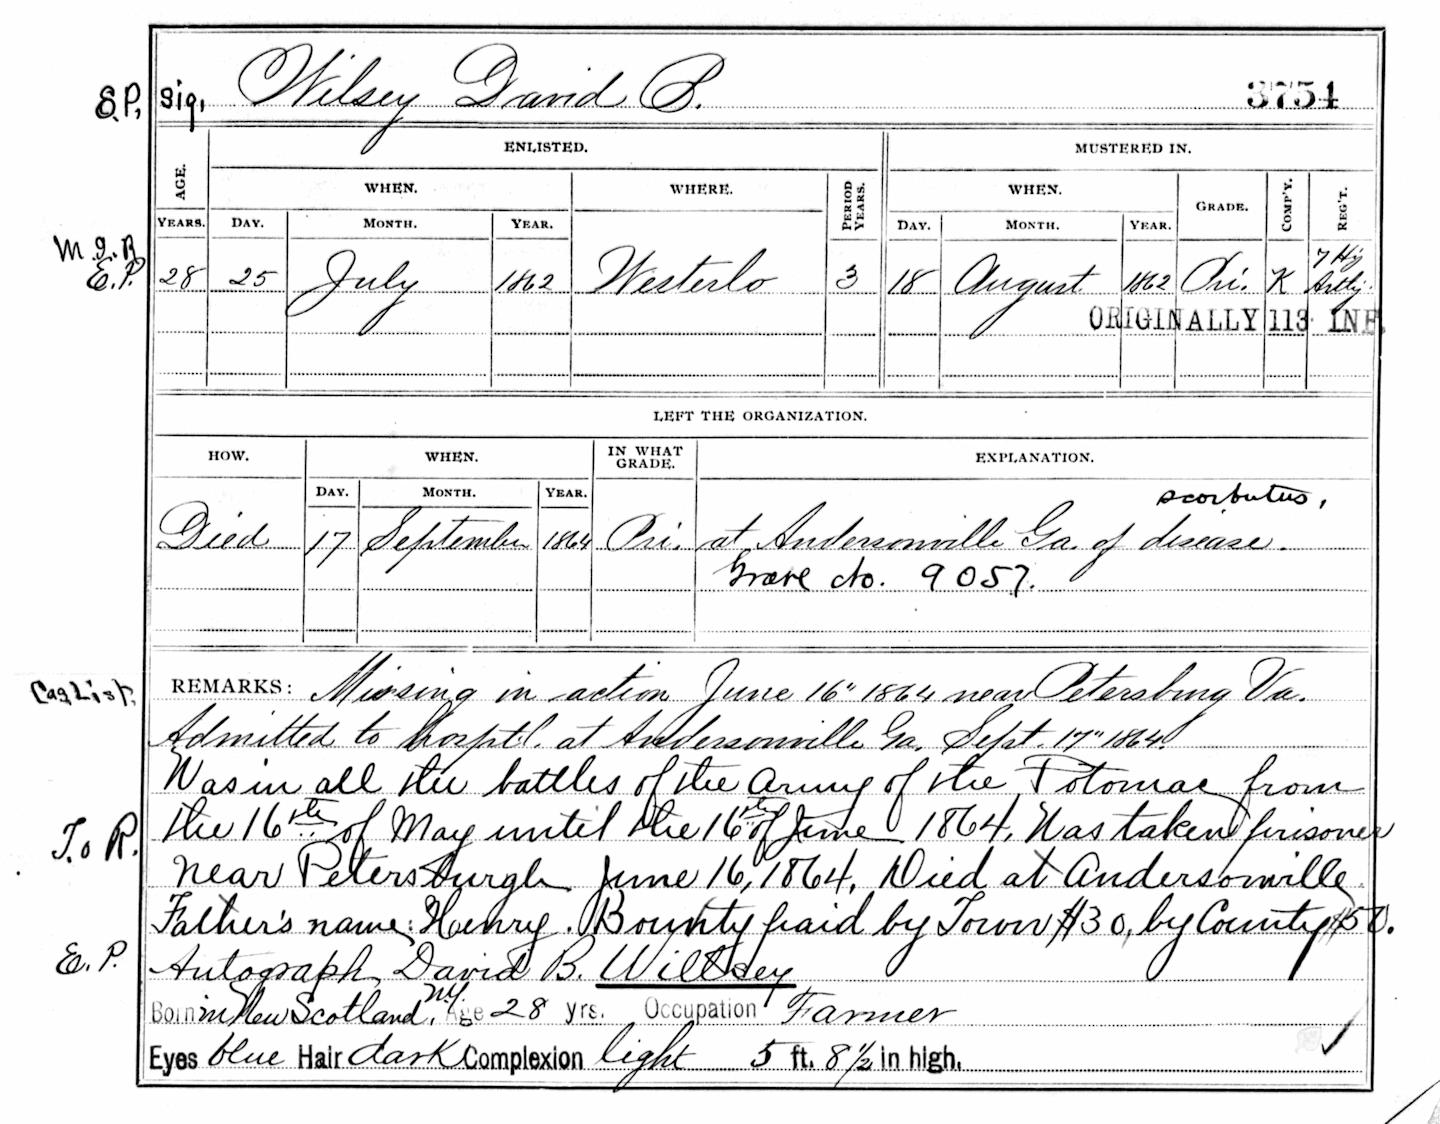 S.P. Sig. Wilsey David B. 3754
ENLISTED. MUSTERED IN.
AGE. WHEN. WHERE. PERIOD YEARS. WHEN. GRADE. COMP'Y. REG'T.
YEARS. DAY. MONTH. YEAR. DAY. MONTH. YEAR.
M.I.R. 7 Hy
E.P. 28 25 July 1862 Westerlo 3 18 August 1862 Pri. K Artly.
ORIGINALLY 113 INF.
LEFT THE ORGANIZATION.
HOW. WHEN. IN WHAT GRADE. EXPLANATION.
DAY. MONTH. YEAR.
scorbutus,
Died 17 September 1864 Pri. at Andersonville Ga. of disease.
Grave No. 9057.
Cas List. REMARKS: Missing in action June 16" 1864 near Petersburg Va.
Admitted to hosptl. at Andersonville Ga. Sept. 17" 1864
Was in all the battles of the Army of the Potomac from
the 16th of May until the 16th of June 1864, Was taken prisoner
T. o R.
near Petersburgh June 16, 1864, Died at Andersonville
Father's name: Henry. Bounty paid by Town $30, by County $50.
E.P. Autograph, David B. Willsey
Born in New Scotland, N.Y. Age 28 yrs. Occupation Farmer
Eyes blue Hair dark Complexion light 5 ft. 8 1/2 in high.